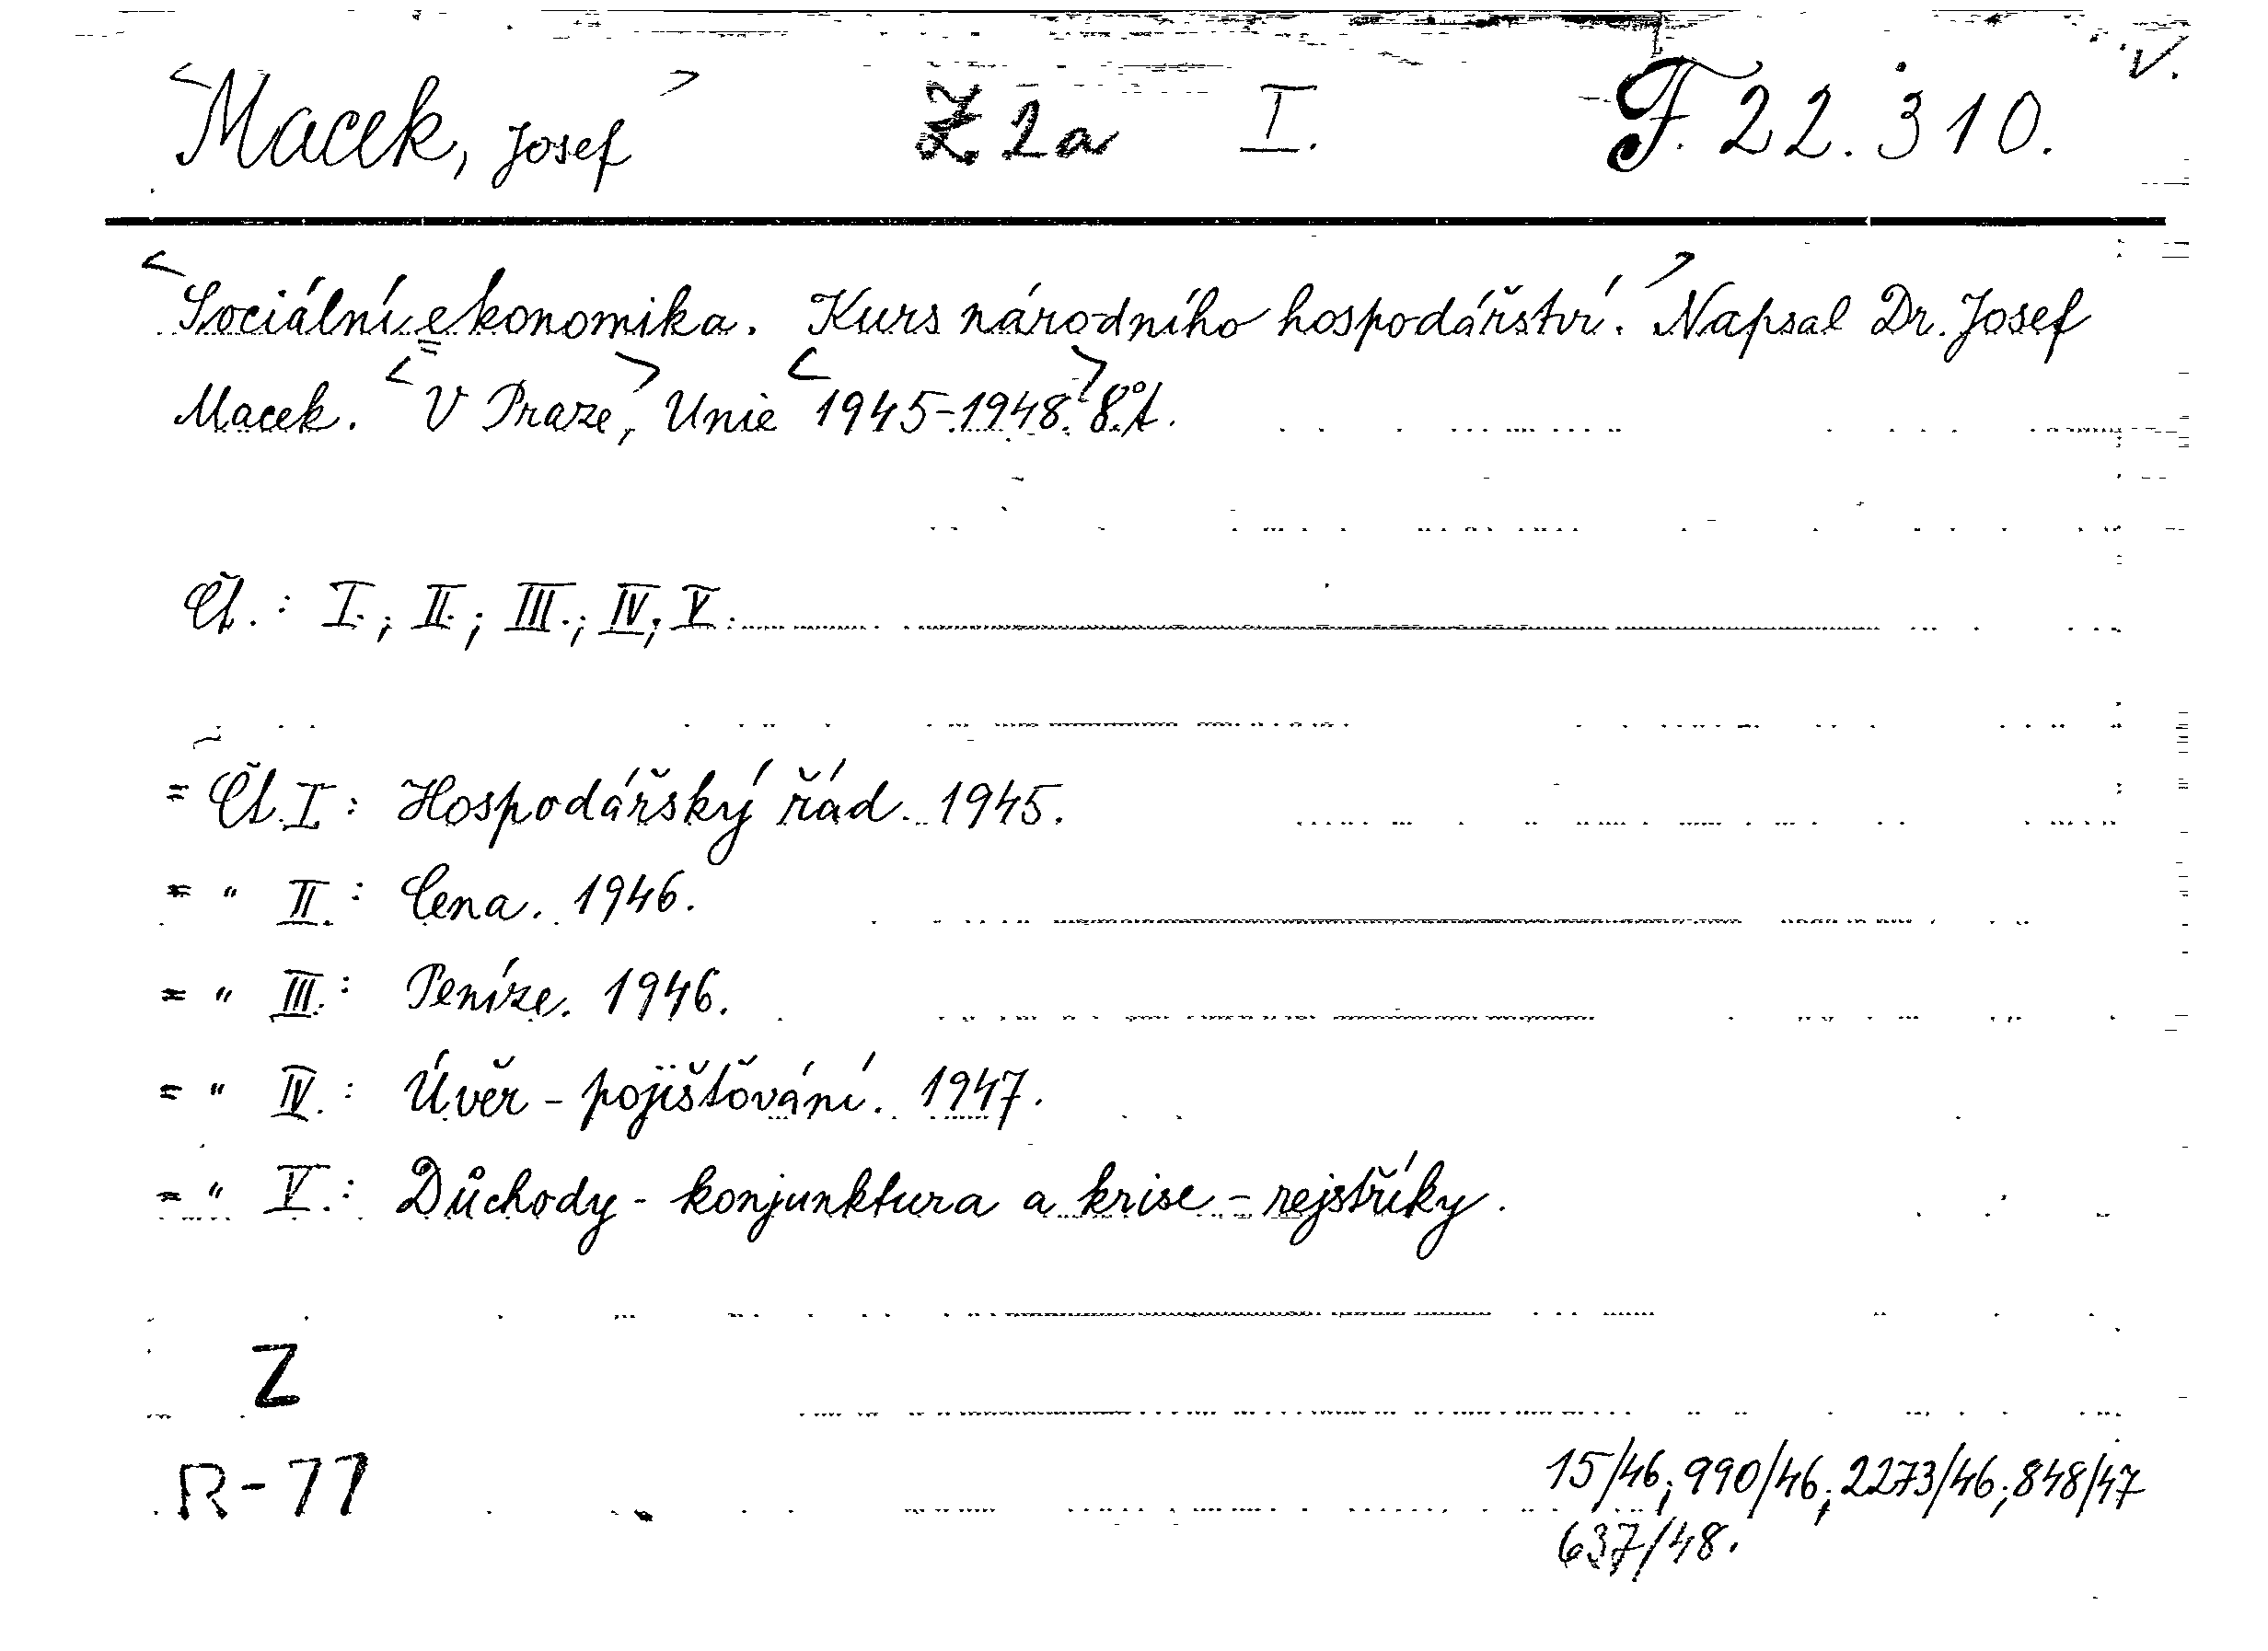 V.
<Macek, Josef> Z 2a I. F. 22.310.
<Sociální ekonomika. Kurs národního hospodářství.> Napsal Dr. Josef
Macek. <V Praze,> Unie <1945-1948.> 8°.
Čl.: I.; II.; III.; IV.; V.
= Čl. I: Hospodářský řád. 1945.
= " II.: Cena. 1946.
= " III.: Peníze. 1946.
= " IV.: Úvěr - pojišťování. 1947.
= " V.: Důchody - konjunktura a krise - rejstříky.
Z
R-77
15/46; 990/46; 2273/46; 848/47
637/48.